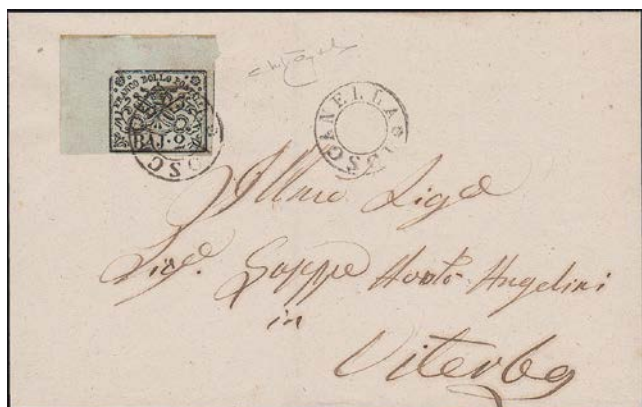 FRANCO BOLLO POSTALE
BAJ. 2
TOSCANELLA
Illmo Sige
Sige. Goppe Angelini
in
Viterbo